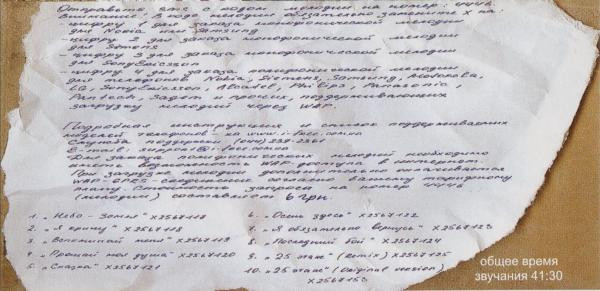 Отправить sms с кодом мелодии на номер: 4446.
Внимание! В коде мелодии обязательно замените X на:
- цифру 1 для заказа монофонической мелодии
для Nokia или Samsung
- цифру 2 для заказа монофонической мелодии
для Siemens
- цифру 3 для заказа монофонической мелодии
для SonyEricsson
- цифру 4 для заказа полифонической мелодии
для телефонов Nokia, Siemens, Samsung, Motorola,
LG, SonyEricsson, Alcatel, Philips, Panasonic,
Pantech, Sagem и прочих, поддерживающих
загрузку мелодий через WAP.
Подробная инструкция и список поддерживаемых
моделей телефонов - на www.i-free.com.ua
Служба поддержки (044)
E-mail: support@i-free.com.ua
Для заказа полифонических мелодий необходимо
иметь возможность WAP-доступа в интернет.
При загрузке мелодии дополнительно оплачивается
WAP-GPRS-соединение согласно вашему тарифному
плану. Стоимость запроса на номер 4446
(мелодии) составляет 6 грн.
1. „Небо - Земля" X2567117
2. „Я кричу" X2567118
3. „Вспоминай меня" X2567119
4. „Прощай моя душа" X2567120
5. „Сказка" X2567121
6. „Осень здесь" X2567122
7. „Я обязательно вернусь" X2567123
8. „Последний бой" X2567124
9. „25 этаж" (Remix) X2567125
10. „25 этаж" (Original version)
X2567153
общее время
звучания 41:30